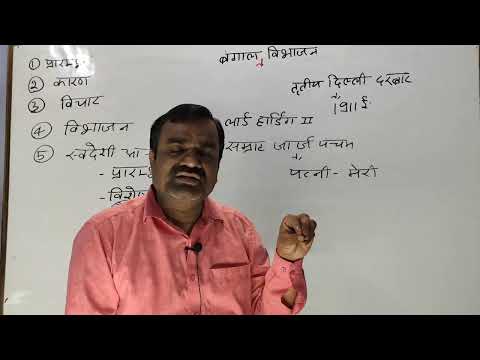 बंगाल विभाजन
① प्रारम्भ
② कारण
③ विचार
④ विभाजन
⑤ स्वदेशी
- प्रारम्भ
तृतीय दिल्ली दरबार
1911 ई.
लार्ड हार्डिंग II
सम्राट जार्ज पंचम
पत्नी - मेरी